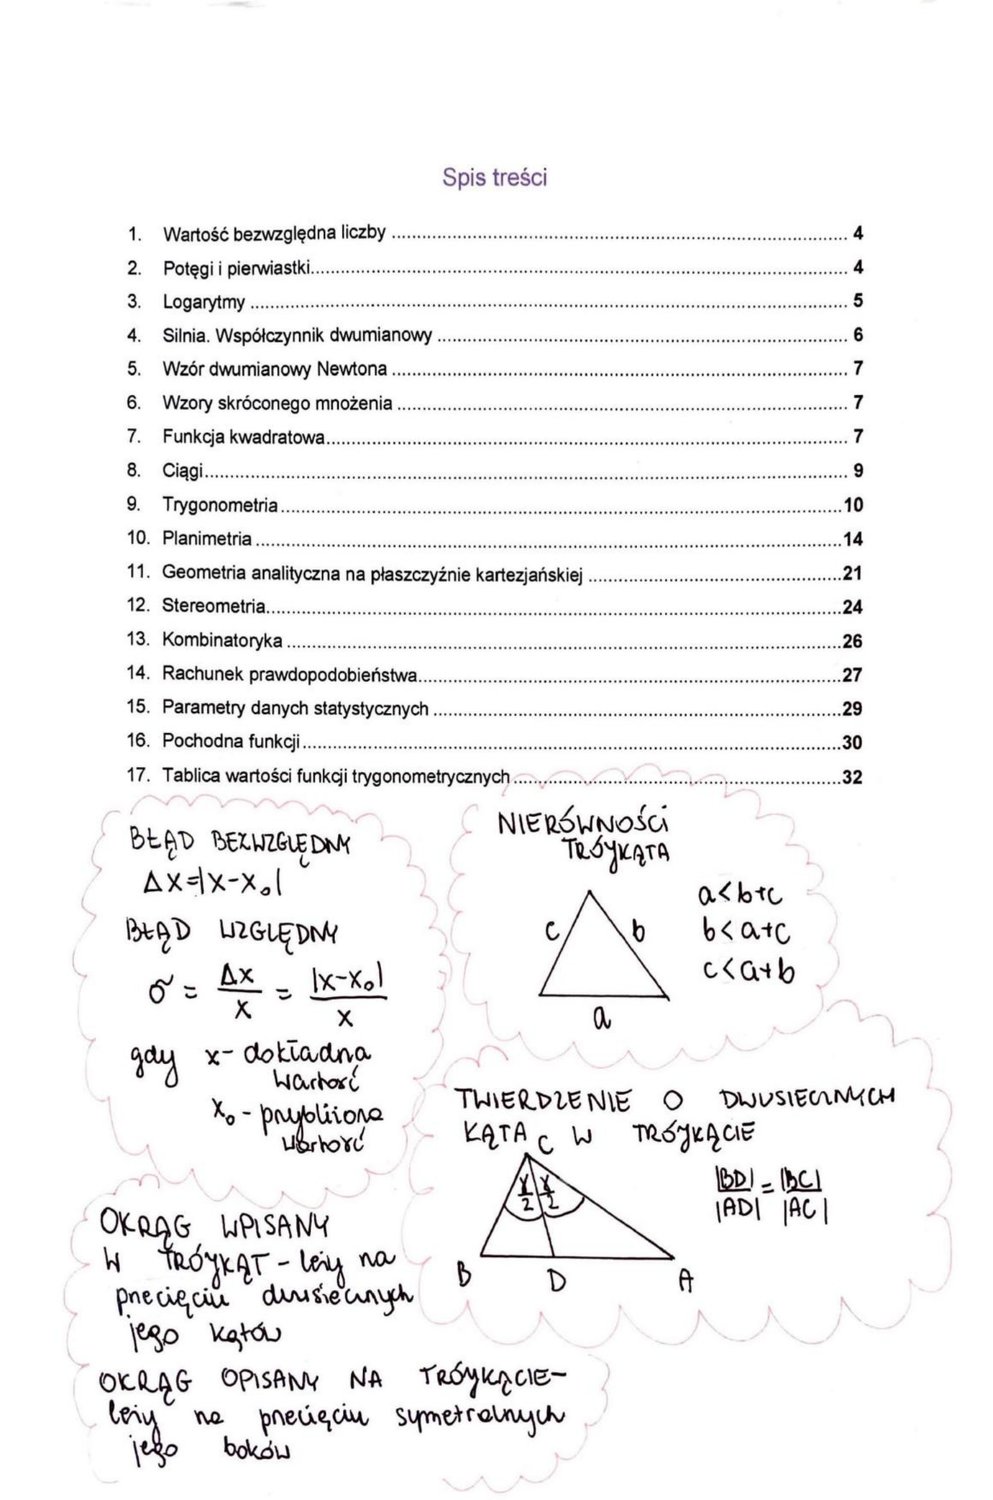 Spis treści
1. Wartość bezwzględna liczby ........ 4
2. Potęgi i pierwiastki ........ 4
3. Logarytmy ........ 5
4. Silnia. Współczynnik dwumianowy ........ 6
5. Wzór dwumianowy Newtona ........ 7
6. Wzory skróconego mnożenia ........ 7
7. Funkcja kwadratowa ........ 7
8. Ciągi ........ 9
9. Trygonometria ........ 10
10. Planimetria ........ 14
11. Geometria analityczna na płaszczyźnie kartezjańskiej ........ 21
12. Stereometria ........ 24
13. Kombinatoryka ........ 26
14. Rachunek prawdopodobieństwa ........ 27
15. Parametry danych statystycznych ........ 29
16. Pochodna funkcji ........ 30
17. Tablica wartości funkcji trygonometrycznych ........ 32
BŁĄD BEZWZGLĘDNY
Δx=|x-x₀|
BŁĄD WZGLĘDNY
σ = Δx/x = |x-x₀|/x
gdy x- dokładna
wartość
x₀ - przybliżona
wartość
NIERÓWNOŚCI
TRÓJKĄTA
a<b+c
c b b<a+c
c<a+b
a
TWIERDZENIE O DWUSIECZNYCH
KĄTA W TRÓJKĄCIE
C
γ/2 γ/2 |BD|/|AD| = |BC|/|AC|
B D A
OKRĄG WPISANY
W TRÓJKĄT - leży na
przecięciu dwusiecznych
jego kątów
OKRĄG OPISANY NA TRÓJKĄCIE-
leży na przecięciu symetralnych
jego boków